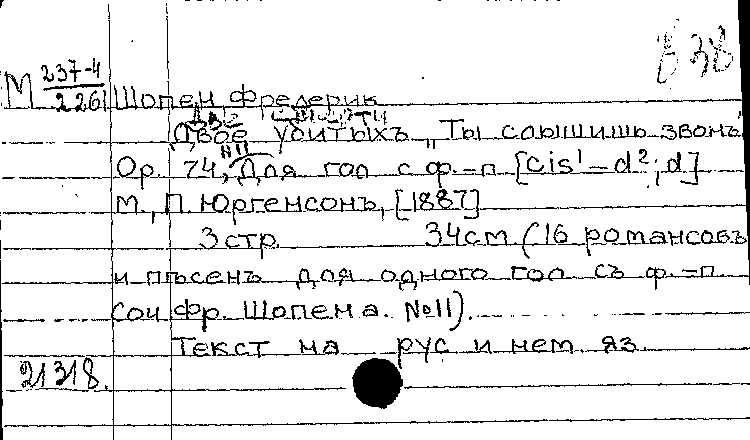 838
М 237-4/2261 Шопен, Фредерик
Двое убитыхъ „Ты слышишь звонъ"
Op. 74, №11 Для гол с ф.-п [cis¹ – d²; d]
М., П. Юргенсонъ, [1887]
3 стр. 34см. (16 романсовъ
и пѣсенъ для одного гол съ ф.-п.
соч Фр. Шопена. №11).
Текст на рус и нем яз.
21318.